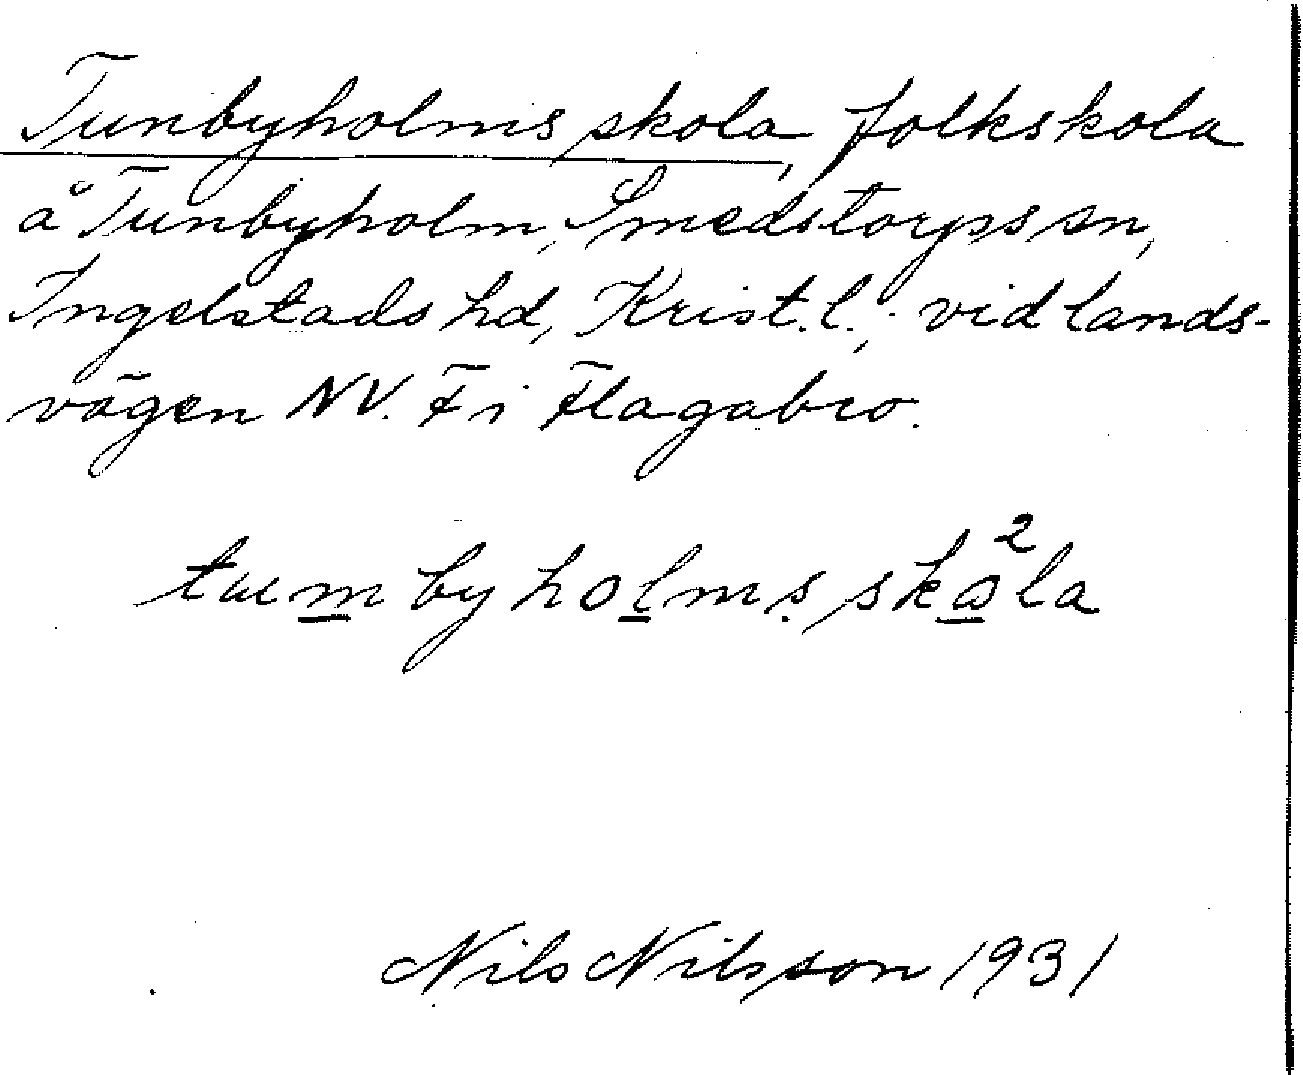 Tunbyholms skola, folkskola
å Tunbyholm, Smedstorps sn,
Ingelstads hd, Krist. l.; vid lands-
vägen NV. F i Flagabro.
tumbyholms skola 2
Nils Nilsson 1931